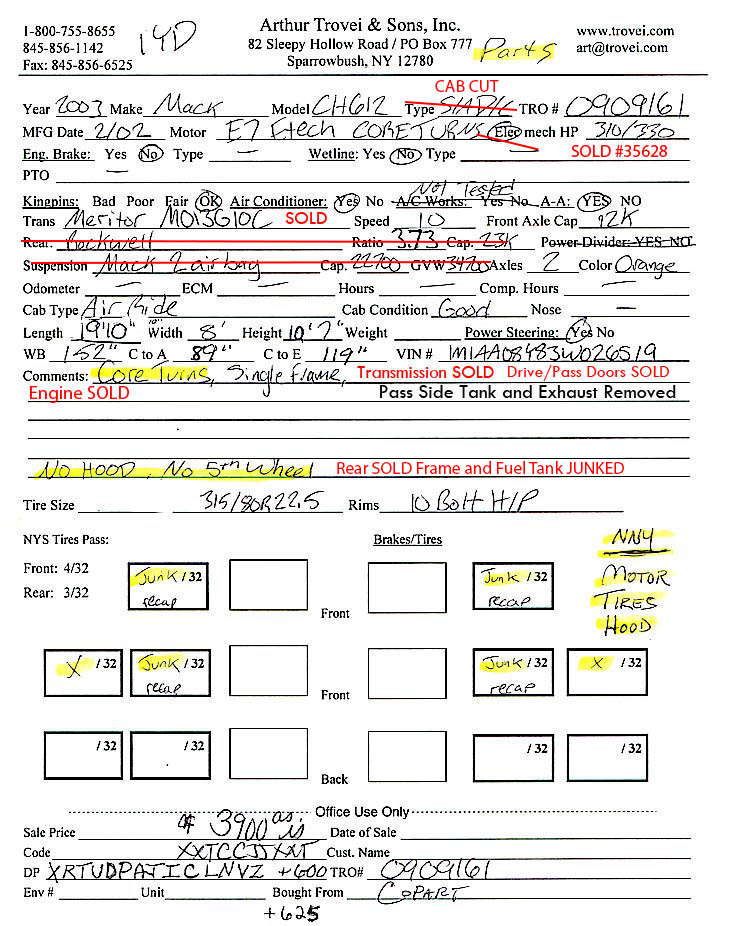 1-800-755-8655
845-856-1142
Fax: 845-856-6525
14D
Arthur Trovei & Sons, Inc.
82 Sleepy Hollow Road / PO Box 777
Sparrowbush, NY 12780
Parts
www.trovei.com
art@trovei.com
CAB CUT
Year 2003 Make Mack Model CH612 Type TRO # 0909161
MFG Date 2/02 Motor E7 Etech CORE TURNS Elec mech HP 310/330
Eng. Brake: Yes No Type — Wetline: Yes No Type — SOLD #35628
PTO —
Not Tested
Kingpins: Bad Poor Fair OK Air Conditioner: Yes No A/C Works: Yes No A-A: YES NO
Trans Meritor MO13G10C SOLD Speed 10 Front Axle Cap 12K
Rear: Rockwell Ratio 3.73 Cap. 23K Power Divider: YES NO
Suspension Mack 2 airbag Cap. 22700 GVW 34700 Axles 2 Color Orange
Odometer — ECM — Hours — Comp. Hours —
Cab Type Air Ride Cab Condition Good Nose —
Length 19'10" 10" Width 8' Height 10'7" Weight Power Steering: Yes No
WB 152" C to A 89" C to E 119" VIN # 1M1AA08483W026519
Comments: Core Turns, Single frame, Transmission SOLD Drive/Pass Doors SOLD
Engine SOLD Pass Side Tank and Exhaust Removed
NO HOOD, No 5th Wheel Rear SOLD Frame and Fuel Tank JUNKED
Tire Size 315/80R22.5 Rims 10 Bolt H/P
NYS Tires Pass: Brakes/Tires
Front: 4/32
Rear: 3/32
NNY
MOTOR
TIRES
HOOD
Junk /32 Junk /32
recap recap
Front
X /32 Junk /32 Junk /32 X /32
recap recap
Front
/32 /32 /32 /32
Back
Office Use Only
Sale Price $ 3900 as is Date of Sale
Code XXTCCJJXNT Cust. Name
DP XRTUDPATICLNVZ +600 TRO# 0909161
Env # Unit Bought From COPART
+625